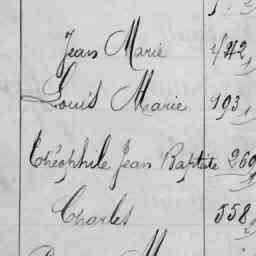 Jean Marie 442
Louis Marie 193
Théophile Jean Baptiste 260
Charles 558